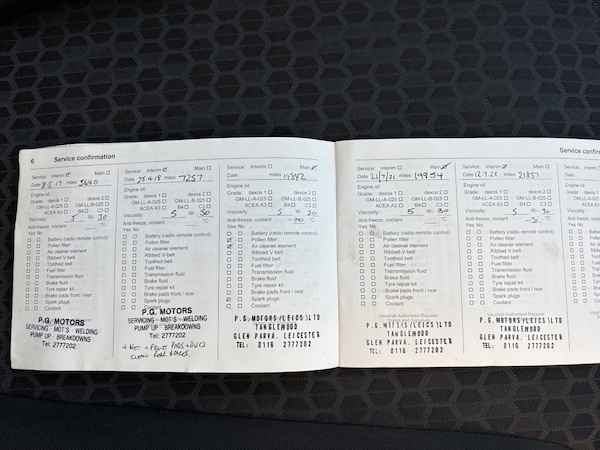 6 Service confirmation
Service: Interim Main
Date 8-5-17 miles 5640
Engine oil
Grade: dexos 1 dexos 2
GM-LL-A-025 GM-LL-B-025
ACEA A3 B4 C3
Viscosity: 5 W- 30
Anti-freeze, coolant °C
Yes No
Battery (radio remote control)
Pollen filter
Air cleaner element
Ribbed V-belt
Toothed belt
Fuel filter
Transmission fluid
Brake fluid
Tyre repair kit
Brake pads front / rear
Spark plugs
Coolant
P.G. MOTORS
SERVICING - MOT'S - WELDING
PUMP UP - BREAKDOWNS
Tel: 2777202
Service: Interim Main
Date 25-4-18 miles 7257
Engine oil
Grade: dexos 1 dexos 2
GM-LL-A-025 GM-LL-B-025
ACEA A3 B4 C3
Viscosity: 5 W- 30
Anti-freeze, coolant °C
Yes No
Battery (radio remote control)
Pollen filter
Air cleaner element
Ribbed V-belt
Toothed belt
Fuel filter
Transmission fluid
Brake fluid
Tyre repair kit
Brake pads front / rear
Spark plugs
Coolant
P.G. MOTORS
SERVICING - MOT'S - WELDING
PUMP UP - BREAKDOWNS
Tel: 2777202
+ MOT + FRONT PADS + DISCS
CLEAN REAR
Service: Interim Main
Date miles
Engine oil
Grade: dexos 1 dexos 2
GM-LL-A-025 GM-LL-B-025
ACEA A3 B4 C3
Viscosity: 5 W- 30
Anti-freeze, coolant -40 °C
Yes No
Battery (radio remote control)
Pollen filter
Air cleaner element
Ribbed V-belt
Toothed belt
Fuel filter
Transmission fluid
Brake fluid
Tyre repair kit
Brake pads front / rear
Spark plugs
Coolant
P.G. MOTORS (LEICS) LTD
TANGLEWOOD
GLEN PARVA, LEICESTER
TEL: 0116 2777202
Service: Interim Main
Date 21/7/21 miles 19954
Engine oil
Grade: dexos 1 dexos 2
GM-LL-A-025 GM-LL-B-025
ACEA A3 B4 C3
Viscosity: 5 W- 30
Anti-freeze, coolant °C
Yes No
Battery (radio remote control)
Pollen filter
Air cleaner element
Ribbed V-belt
Toothed belt
Fuel filter
Transmission fluid
Brake fluid
Tyre repair kit
Brake pads front / rear
Spark plugs
Coolant
Vauxhall Authorised Repairer
P.G. MOTORS (LEICS) LTD
TANGLEWOOD
GLEN PARVA, LEICESTER
TEL: 0116 2777202
Service: Interim Main
Date 12.7.22 miles 21857
Engine oil
Grade: dexos 1 dexos 2
GM-LL-A-025 GM-LL-B-025
ACEA A3 B4 C3
Viscosity: 5 W- 30
Anti-freeze, coolant °C
Yes No
Battery (radio remote control)
Pollen filter
Air cleaner element
Ribbed V-belt
Toothed belt
Fuel filter
Transmission fluid
Brake fluid
Tyre repair kit
Brake pads front / rear
Spark plugs
Coolant
Vauxhall Authorised Repairer
P.G. MOTORS (LEICS) LTD
TANGLEWOOD
GLEN PARVA, LEICESTER
TEL: 0116 2777202
Service confirm
Service:
Date
Engine oil
Grade:
Viscosity:
Anti-freeze
Yes No